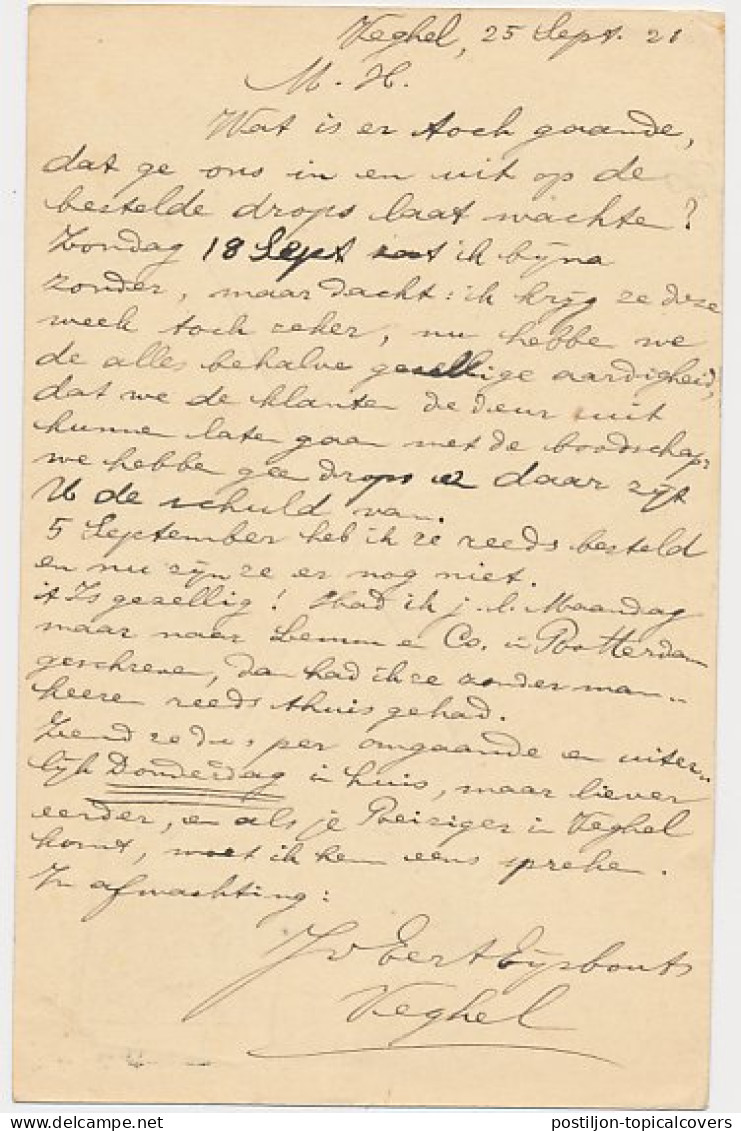 Veghel, 25 Sept. 21
M. H.
Wat is er toch gaande,
dat ge ons in en uit op de
bestelde drops laat wachte?
Zondag 18 Sept zat ik bijna
zonder, maar dacht: ik krijg ze deze
week toch zeker, nu hebbe we
de alles behalve gezellige aardigheid,
dat we de klanten de deur uit
kunne laten gaan met de boodschap:
we hebbe gee drops en daar zijt
U de schuld van.
5 September heb ik ze reeds besteld
en nu zijn ze er nog niet.
't Is gezellig! Had ik j.l. Maandag
maar naar & Co. in Rotterdam
geschreve, dan had ik ze zonder man„
keeren reeds thuis gehad.
Zend ze dus per omgaande en uiter„
lijk Donderdag in huis, maar liever
eerder, en als je Reiziger in Veghel
komt, moet ik hem eens spreken.
In afwachting:
Jv Eert Eijsbouts
Veghel
postiljon-topicalcovers